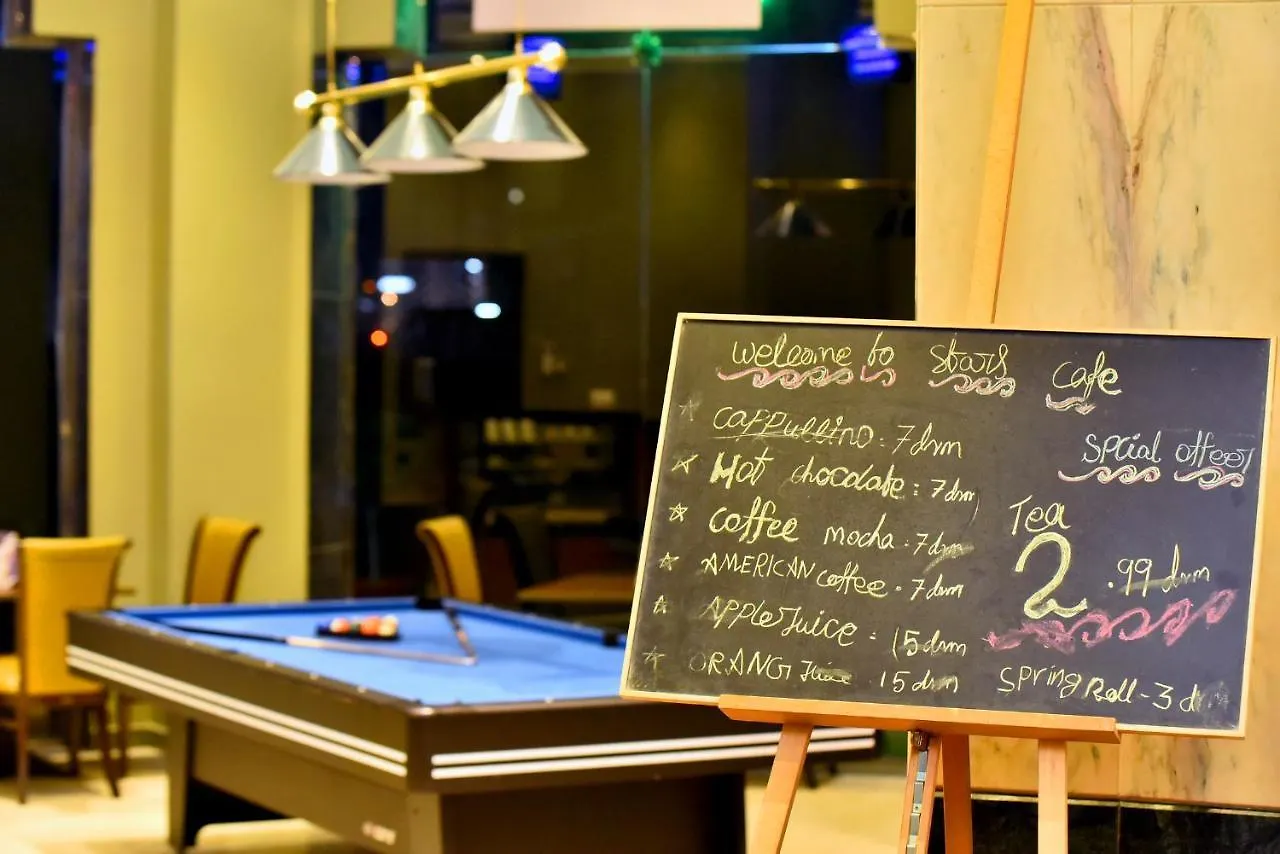 welcome to stars cafe
cappullino: 7 drm
Hot chocolate: 7 drm
coffee mocha: 7 drm
AMERICAN coffee. 7 drm
Apple Juice: 15 drm
ORANG Juice 15 drm
spcial offers
Tea
2.99 drm
spring Roll - 3 d